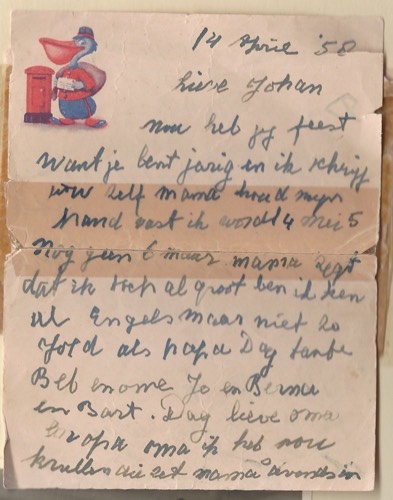 14 April '58
Lieve Johan
nou heb jy feest
want je bent jarig en ik schrijf
zelf mama houd myn
hand vast ik wordt 4 mei 5
nog geen 6 maar mama zegt
dat ik toch al groot ben ik ken
al Engels maar niet zo
goed als papa Dag tante
Beb en ome Jo en Berna
en Bart. Dag lieve oma
en opa oma ik heb nou
krullen die zet mama 's avonds in